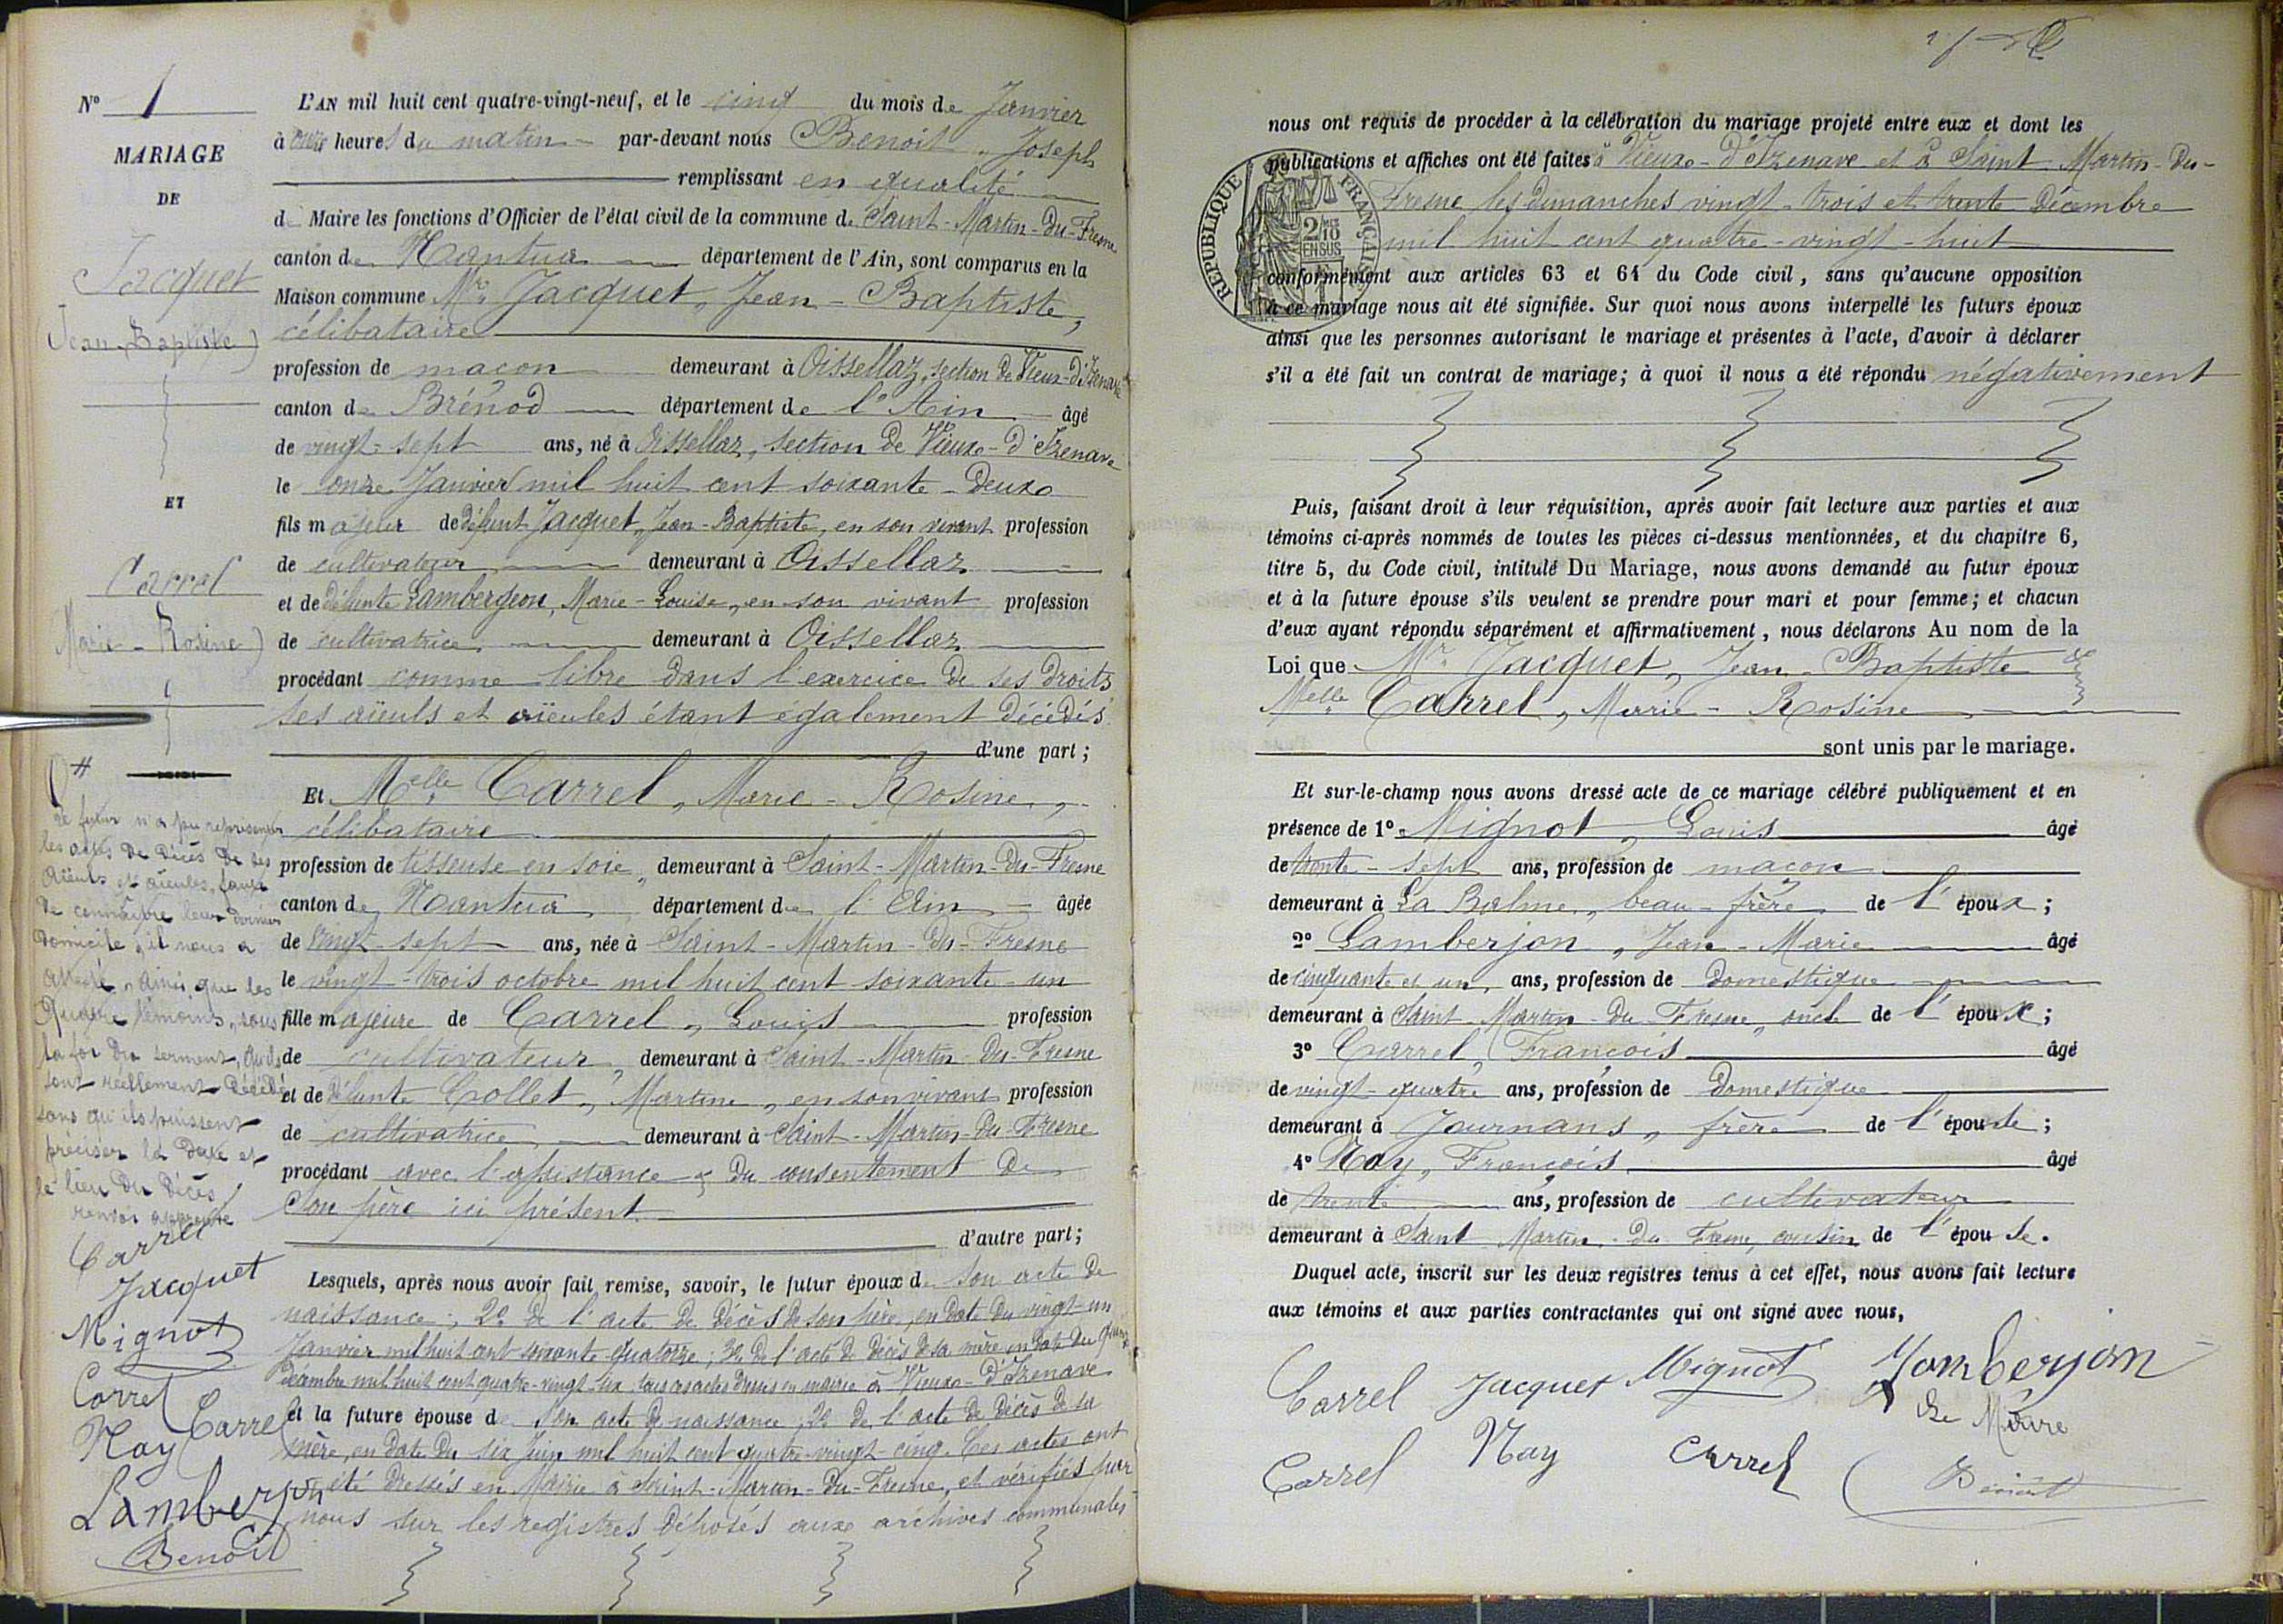 N° 1
MARIAGE
DE
Jacquet
(Jean-Baptiste)
ET
Carrel
Marie-Rosine)
L'AN mil huit cent quatre-vingt-neuf, et le cinq du mois de Janvier
à onze heures du matin par-devant nous Benoit, Joseph
remplissant en qualité
de Maire les fonctions d'Officier de l'état civil de la commune de Saint-Martin-du-Fresne
canton de Nantua département de l'Ain, sont comparus en la
Maison commune Mr. Jacquet, Jean-Baptiste,
célibataire
profession de maçon demeurant à Oissellaz, section de Vieux-d'Izenave
canton de Brénod département de l'Ain âgé
de vingt-sept ans, né à Oissellaz, section de Vieux-d'Izenave
le onze Janvier mil huit cent soixante-deux
fils majeur de défunt Jacquet, Jean-Baptiste, en son vivant profession
de cultivateur demeurant à Oissellaz
et de défunte Lambergeon, Marie-Louise, en son vivant profession
de cultivatrice demeurant à Oissellaz
procédant comme libre dans l'exercice de ses droits
ses aïeuls et aïeules étant également décédés
d'une part;
Et Melle Carrel, Marie-Rosine,
célibataire
profession de tisseuse en soie, demeurant à Saint-Martin-du-Fresne
canton de Nantua département de l'Ain âgée
de vingt-sept ans, née à Saint-Martin-du-Fresne
le vingt-trois octobre mil huit cent soixante-un
fille majeure de Carrel, Louis profession
de cultivateur, demeurant à Saint-Martin-du-Fresne
et de défunte Collet, Martine, en son vivant profession
de cultivatrice demeurant à Saint-Martin-du-Fresne
procédant avec l'assistance & du consentement de
son père ici présent
d'autre part;
Lesquels, après nous avoir fait remise, savoir, le futur époux de son acte de
naissance; 2° de l'acte de décès de son père, en date du vingt-un
Janvier mil huit cent soixante-quatorze; 3° de l'acte de décès de sa mère en date du
décembre mil huit cent quatre-vingt-six, tous ces actes dressés en mairie à Vieux-d'Izenave
et la future épouse de son acte de naissance; 2° de l'acte de décès de sa
mère, en date du six Juin mil huit cent quatre-vingt-cinq. Ces actes ont
été dressés en Mairie à Saint-Martin-du-Fresne, et vérifiés par
nous sur les registres déposés aux archives communales
le futur n'a pu représenter
les actes de décès de ses
aïeuls et aïeules, faute
de connaître leur dernier
domicile, il nous a
attesté, ainsi que les
quatre témoins, sous
la foi du serment, qu'ils
sont réellement décédés
sans qu'ils puissent
préciser la date et
le lieu du décès
renvoi approuvé
Carrel
Jacquet
Mignot
Carrel
Nay Carrel
Lamberjon
Benoit
nous ont requis de procéder à la célébration du mariage projeté entre eux et dont les
publications et affiches ont été faites à Vieux-d'Izenave et à Saint-Martin-du-
Fresne les dimanches vingt-trois et trente Décembre
mil huit cent quatre-vingt-huit
RÉPUBLIQUE FRANÇAISE
2/10 EN SUS
conformément aux articles 63 et 64 du Code civil, sans qu'aucune opposition
à ce mariage nous ait été signifiée. Sur quoi nous avons interpellé les futurs époux
ainsi que les personnes autorisant le mariage et présentes à l'acte, d'avoir à déclarer
s'il a été fait un contrat de mariage; à quoi il nous a été répondu négativement
Puis, faisant droit à leur réquisition, après avoir fait lecture aux parties et aux
témoins ci-après nommés de toutes les pièces ci-dessus mentionnées, et du chapitre 6,
titre 5, du Code civil, intitulé Du Mariage, nous avons demandé au futur époux
et à la future épouse s'ils veulent se prendre pour mari et pour femme; et chacun
d'eux ayant répondu séparément et affirmativement, nous déclarons Au nom de la
Loi que Mr. Jacquet, Jean-Baptiste &
Melle Carrel, Marie-Rosine
sont unis par le mariage.
Et sur-le-champ nous avons dressé acte de ce mariage célébré publiquement et en
présence de 1° Mignot, Louis âgé
de trente-sept ans, profession de maçon
demeurant à La Balme, beau-frère de l'époux;
2° Lamberjon, Jean-Marie âgé
de cinquante et un, ans, profession de domestique
demeurant à Saint-Martin-du-Fresne, oncle de l'époux;
3° Carrel, François âgé
de vingt-quatre ans, profession de domestique
demeurant à Journans, frère de l'épouse;
4° Nay, François âgé
de trente ans, profession de cultivateur
demeurant à Saint Martin-du Fresne, cousin de l'épouse.
Duquel acte, inscrit sur les deux registres tenus à cet effet, nous avons fait lecture
aux témoins et aux parties contractantes qui ont signé avec nous,
Carrel Jacquet Mignot Lamberjon
Le Maire
Carrel Nay Carrel
Benoit